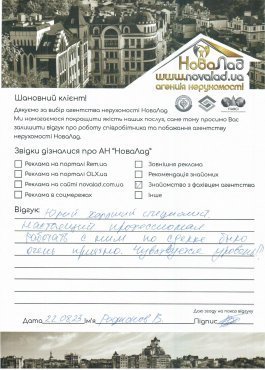 НоваЛад
www.novalad.ua
агенція нерухомості
Шановний клієнт!
Дякуємо за вибір агентства нерухомості НоваЛад.
Ми намагаємося покращити якість наших послуг, саме тому просимо Вас
залишити відгук про роботу співробітника та побажання агентству
нерухомості НоваЛад.
Звідки дізналися про АН "НоваЛад"
Реклама на порталі Rem.ua
Зовнішня реклама
Реклама на порталі OLX.ua
Рекомендація знайомих
Реклама на сайті novalad.com.ua
Знайомство з фахівцем агентства
Реклама в соцмережах
Інше
Відгук: Юрий хороший специалист
Настоящий профессионал
Работать с ним по сделке было
очень приятно. Чувствуется уровень!!!
Даю згоду на показ відгуку
Дата 22.08.23 Ім'я Родионов В. Підпис